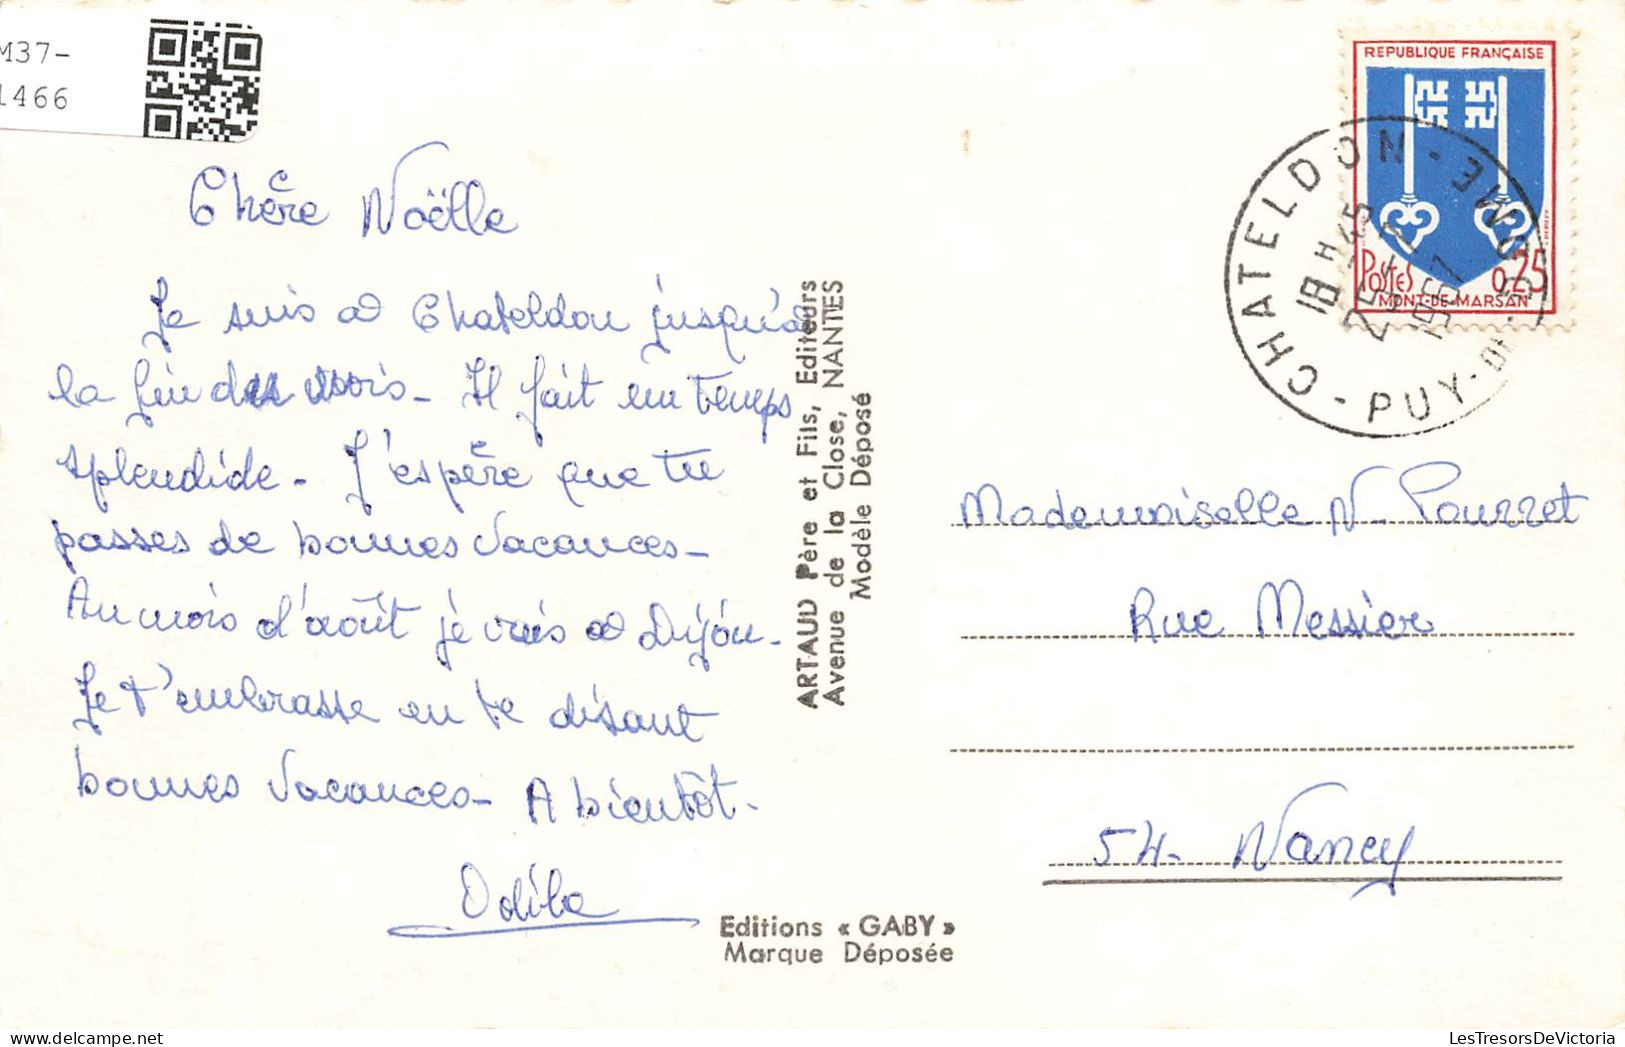 M37-
1466
Chère Noëlle
Je suis à Chateldon jusqu'à
la fin du mois - Il fait un temps
splendide - J'espère que tu
passes de bonnes vacances -
Au mois d'août je vais à Dijon -
Je t'embrasse en te disant
bonnes vacances - A bientôt -
Odile
ARTAUD Père et Fils, Editeurs
Avenue de la Close, NANTES
Modèle Déposé
Editions « GABY »
Marque Déposée
REPUBLIQUE FRANÇAISE
POSTES 0,25
MONT-DE-MARSAN
CHATELDON - PUY-DE-DOME
18 H 45
25-7
1967
Mademoiselle N Pourret
Rue Messier
54 - Nancy
LesTresorsDeVictoria